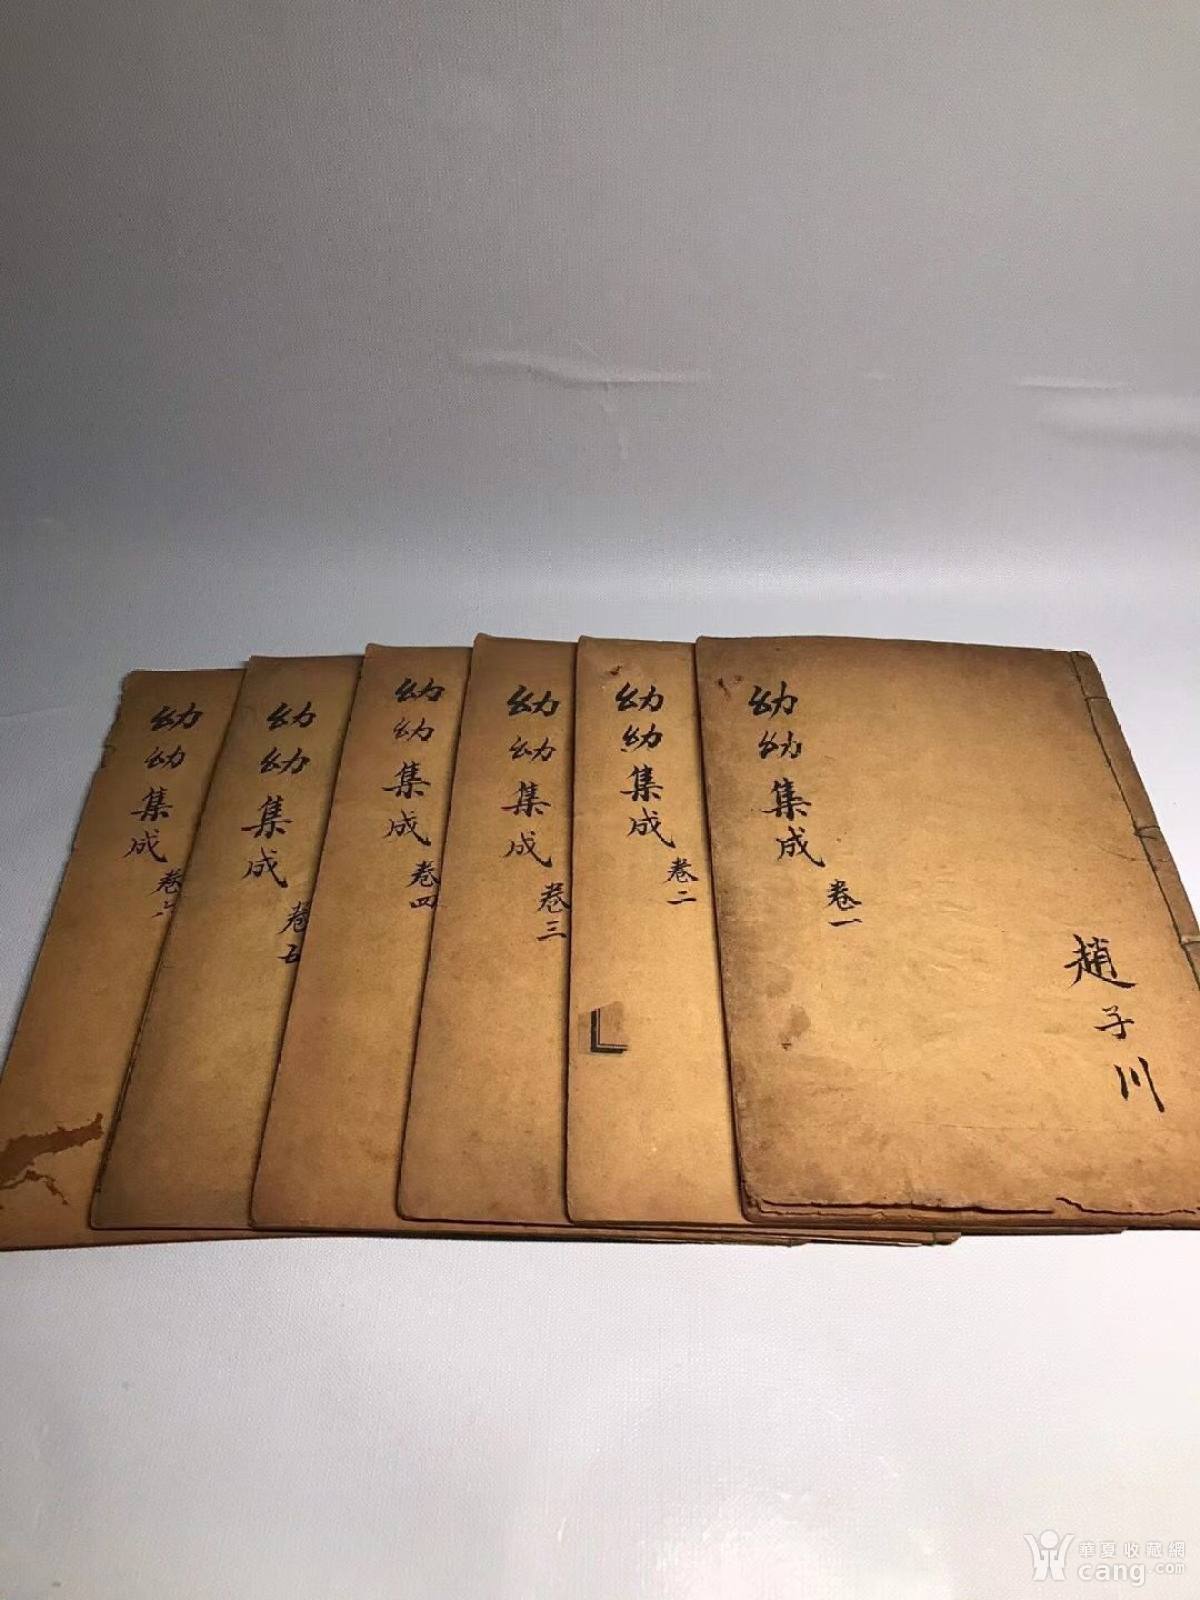 幼幼集成
卷一
趙子川
幼幼集成
卷二
幼幼集成
卷三
幼幼集成
卷四
幼幼集成
卷五
幼幼集成
卷六
華夏收藏網
cang.com